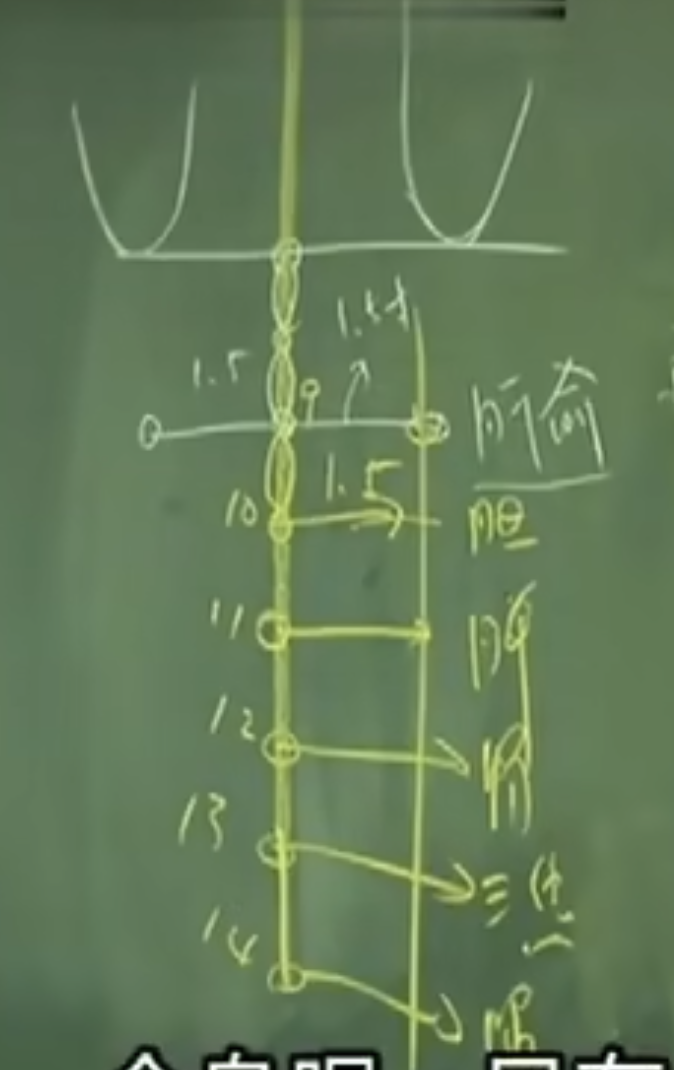 1.5寸
1.5
9
肝俞
1.5
10 胆
11 脾
12
13 三焦
14